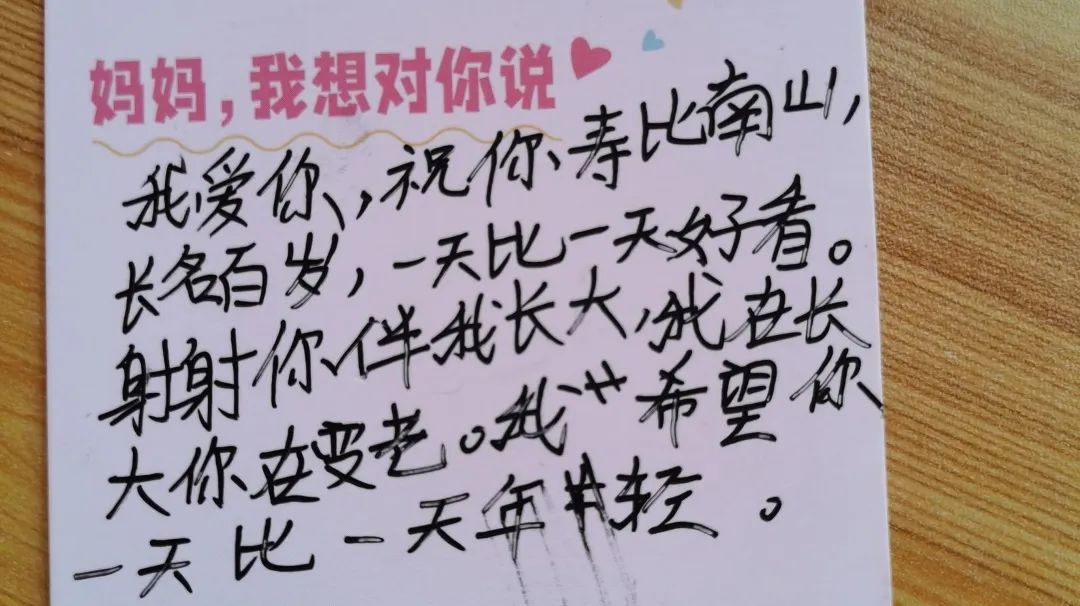 妈妈，我想对你说
我爱你，祝你寿比南山，
长名百岁，一天比一天好看。
射射你伴我长大，我在长
大你在变老。我希望你
一天比一天年轻。